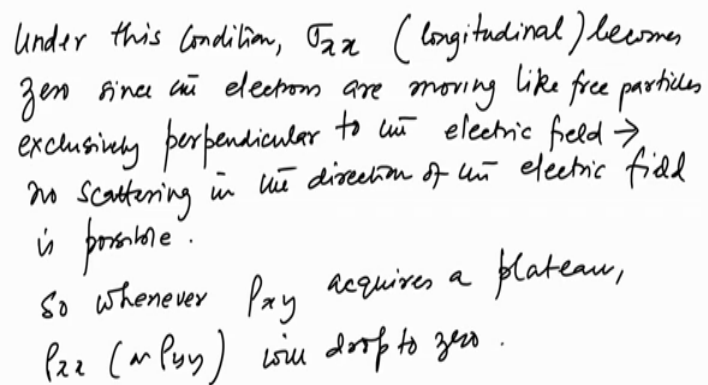 Under this Condition, σxx (longitudinal) becomes
zero since the electrons are moving like free particles
exclusively perpendicular to the electric field →
no scattering in the direction of the electric field
is possible.
So whenever ρxy acquires a plateau,
ρxx (~ ρyy) will drop to zero.